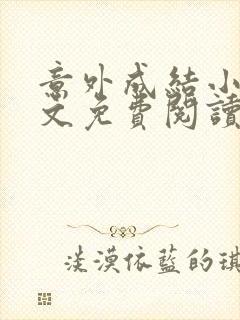 意外成結小
文免費閱讀
淡漠依藍的琪